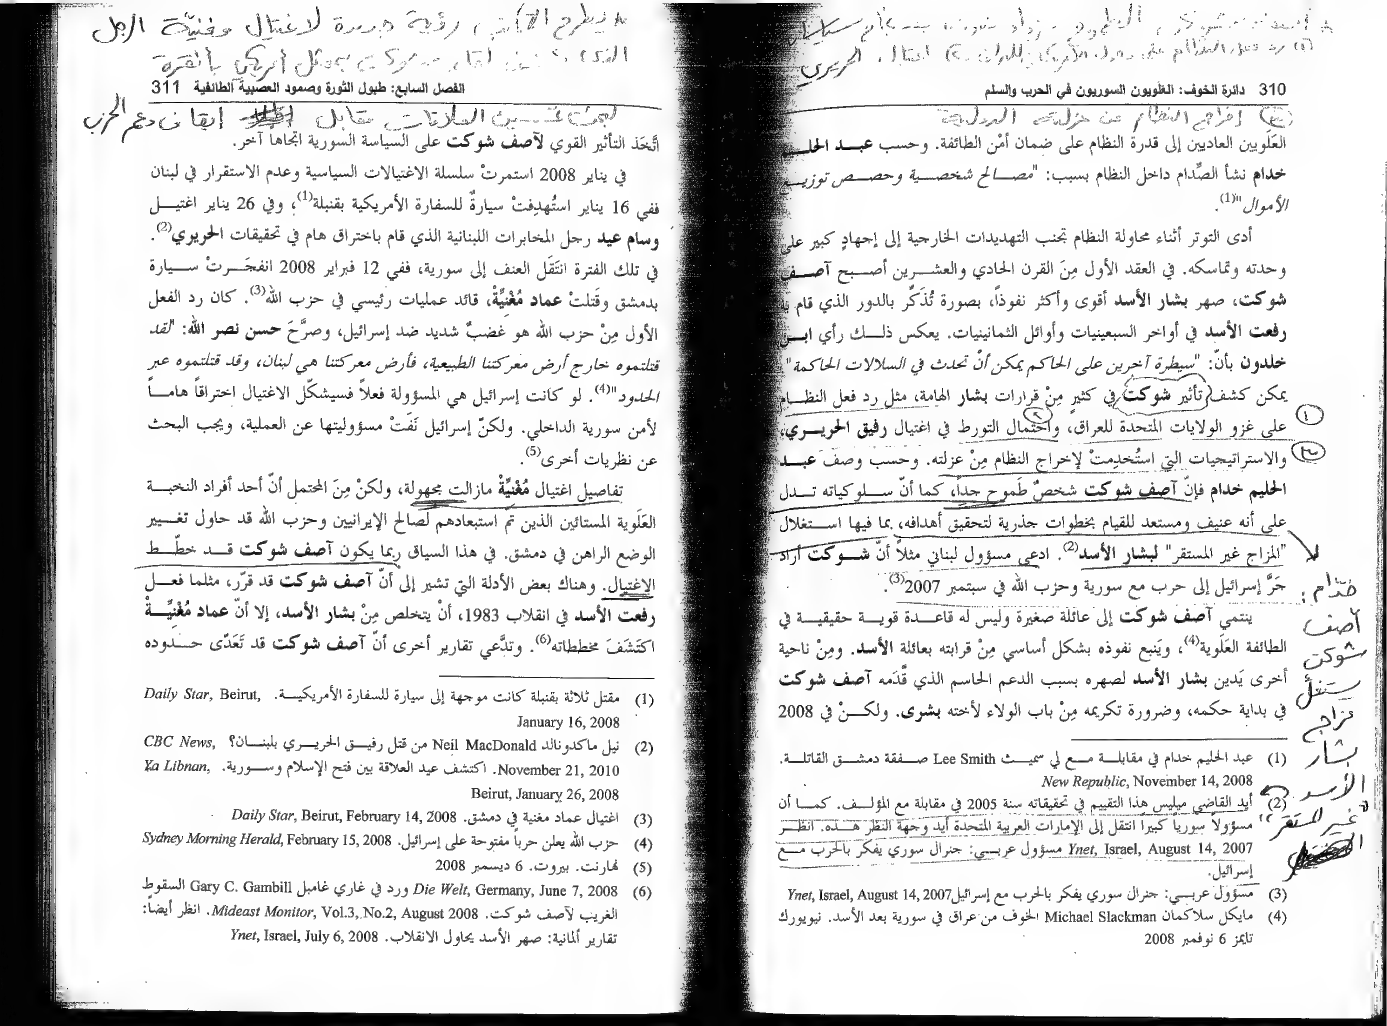 310 دائرة الخوف: العلويون السوريون في الحرب والسلم
العَلَويين العاديين إلى قدرة النظام على ضمان أمْن الطائفة. وحسب عبد الحليم
خدام نشأ الصِّدام داخل النظام بسبب: "مصالح شخصية وحصص توزيع
الأموال"(1).
أدى التوتر أثناء محاولة النظام تجنب التهديدات الخارجية إلى إجهادٍ كبير على
وحدته وتماسكه. في العقد الأول مِنَ القرن الحادي والعشرين أصبح آصف
شوكت، صهر بشار الأسد أقوى وأكثر نفوذاً، بصورة تُذَكِّر بالدور الذي قام به
رفعت الأسد في أواخر السبعينيات وأوائل الثمانينيات. يعكس ذلك رأي ابن
خلدون بأنّ: "سيطرة آخرين على الحاكم يمكن أنْ تحدث في السلالات الحاكمة"
يمكن كشف تأثير شوكت في كثيرٍ مِنْ قرارات بشار الهامة، مثل رد فعل النظام
على غزو الولايات المتحدة للعراق، واحتمال التورط في اغتيال رفيق الحريري،
والاستراتيجيات التي استُخدِمتْ لإخراج النظام مِنْ عزلته. وحسب وصف عبد
الحليم خدام فإنّ آصف شوكت شخصٌ طَموح جداً، كما أنّ سلوكياته تدل
على أنه عنيف ومستعد للقيام بخطوات جذرية لتحقيق أهدافه، بما فيها استغلال
"المزاج غير المستقر" لبشار الأسد(2). ادعى مسؤول لبناني مثلاً أنّ شوكت أراد
جَرَّ إسرائيل إلى حرب مع سورية وحزب الله في سبتمبر 2007(3).
ينتمي آصف شوكت إلى عائلة صغيرة وليس له قاعدة قوية حقيقية في
الطائفة العَلَوية(4)، ويَنبع نفوذه بشكل أساسي مِنْ قرابته بعائلة الأسد. ومِنْ ناحية
أخرى يَدين بشار الأسد لصهره بسبب الدعم الحاسم الذي قدَّمه آصف شوكت
في بداية حكمه، وضرورة تكريمه مِنْ باب الولاء لأخته بشرى. ولكنْ في 2008
(1) عبد الحليم خدام في مقابلة مع لي سميث Lee Smith صفقة دمشق القاتلة.
New Republic, November 14, 2008
(2) أيد القاضي ميليس هذا التقييم في تحقيقاته سنة 2005 في مقابلة مع المؤلف. كما أن
مسؤولاً سورياً كبيراً انتقل إلى الإمارات العربية المتحدة أيد وجهة النظر هذه. انظر
Ynet, Israel, August 14, 2007 مسؤول عربي: جنرال سوري يفكر بالحرب مع
إسرائيل.
(3) مسؤول عربي: جنرال سوري يفكر بالحرب مع إسرائيل Ynet, Israel, August 14, 2007
(4) مايكل سلاكمان Michael Slackman الخوف من عراق في سورية بعد الأسد. نيويورك
تايمز 6 نوفمبر 2008
خدّام:
آصف
شوكت
يستغل
مزاج
بشار
الأسد
"غير المستقر"
الفصل السابع: طبول الثورة وصمود العصبية الطائفية 311
اتَّخذ التأثير القوي لآصف شوكت على السياسة السورية اتجاهاً آخر.
في يناير 2008 استمرتْ سلسلة الاغتيالات السياسية وعدم الاستقرار في لبنان
ففي 16 يناير استُهدِفتْ سيارةٌ للسفارة الأمريكية بقنبلة(1)، وفي 26 يناير اغتيل
وسام عيد رجل المخابرات اللبنانية الذي قام باختراق هام في تحقيقات الحريري(2).
في تلك الفترة انتَقَل العنف إلى سورية، ففي 12 فبراير 2008 انفجَرتْ سيارة
بدمشق وقَتلتْ عماد مُغْنِيَّةْ، قائد عمليات رئيسي في حزب الله(3). كان رد الفعل
الأول مِنْ حزب الله هو غضبٌ شديد ضد إسرائيل، وصرَّحَ حسن نصر الله: "لقد
قتلتموه خارج أرض معركتنا الطبيعية، فأرض معركتنا هي لبنان، وقد قتلتموه عبر
الحدود"(4). لو كانت إسرائيل هي المسؤولة فعلاً فسيشكّل الاغتيال اختراقاً هاماً
لأمن سورية الداخلي. ولكنّ إسرائيل نَفَتْ مسؤوليتها عن العملية، ويجب البحث
عن نظريات أخرى(5).
تفاصيل اغتيال مُغْنِيَّةْ مازالت مجهولة، ولكنْ مِنَ المحتمل أنّ أحد أفراد النخبة
العَلَوية المستائين الذين تمّ استبعادهم لصالح الإيرانيين وحزب الله قد حاول تغيير
الوضع الراهن في دمشق. في هذا السياق ربما يكون آصف شوكت قد خطّط
الاغتيال. وهناك بعض الأدلة التي تشير إلى أنّ آصف شوكت قد قرّر، مثلما فعل
رفعت الأسد في انقلاب 1983، أنْ يتخلص مِنْ بشار الأسد، إلا أنّ عماد مُغْنِيَّةْ
اكتَشَفَ مخططاته(6). وتدَّعي تقارير أخرى أنّ آصف شوكت قد تَعَدّى حدوده
(1) مقتل ثلاثة بقنبلة كانت موجهة إلى سيارة للسفارة الأمريكية. Daily Star, Beirut,
January 16, 2008
(2) نيل ماكدونالد Neil MacDonald من قتل رفيق الحريري بلبنان؟ CBC News,
November 21, 2010. اكتشف عيد العلاقة بين فتح الإسلام وسورية. Ya Libnan,
Beirut, January 26, 2008
(3) اغتيال عماد مغنية في دمشق. Daily Star, Beirut, February 14, 2008
(4) حزب الله يعلن حرباً مفتوحة على إسرائيل. Sydney Morning Herald, February 15, 2008
(5) نهارنت. بيروت. 6 ديسمبر 2008
(6) Die Welt, Germany, June 7, 2008 ورد في غاري غامبل Gary C. Gambill السقوط
الغريب لآصف شوكت. Mideast Monitor, Vol.3, No.2, August 2008. انظر أيضاً:
تقارير ألمانية: صهر الأسد يحاول الانقلاب. Ynet, Israel, July 6, 2008